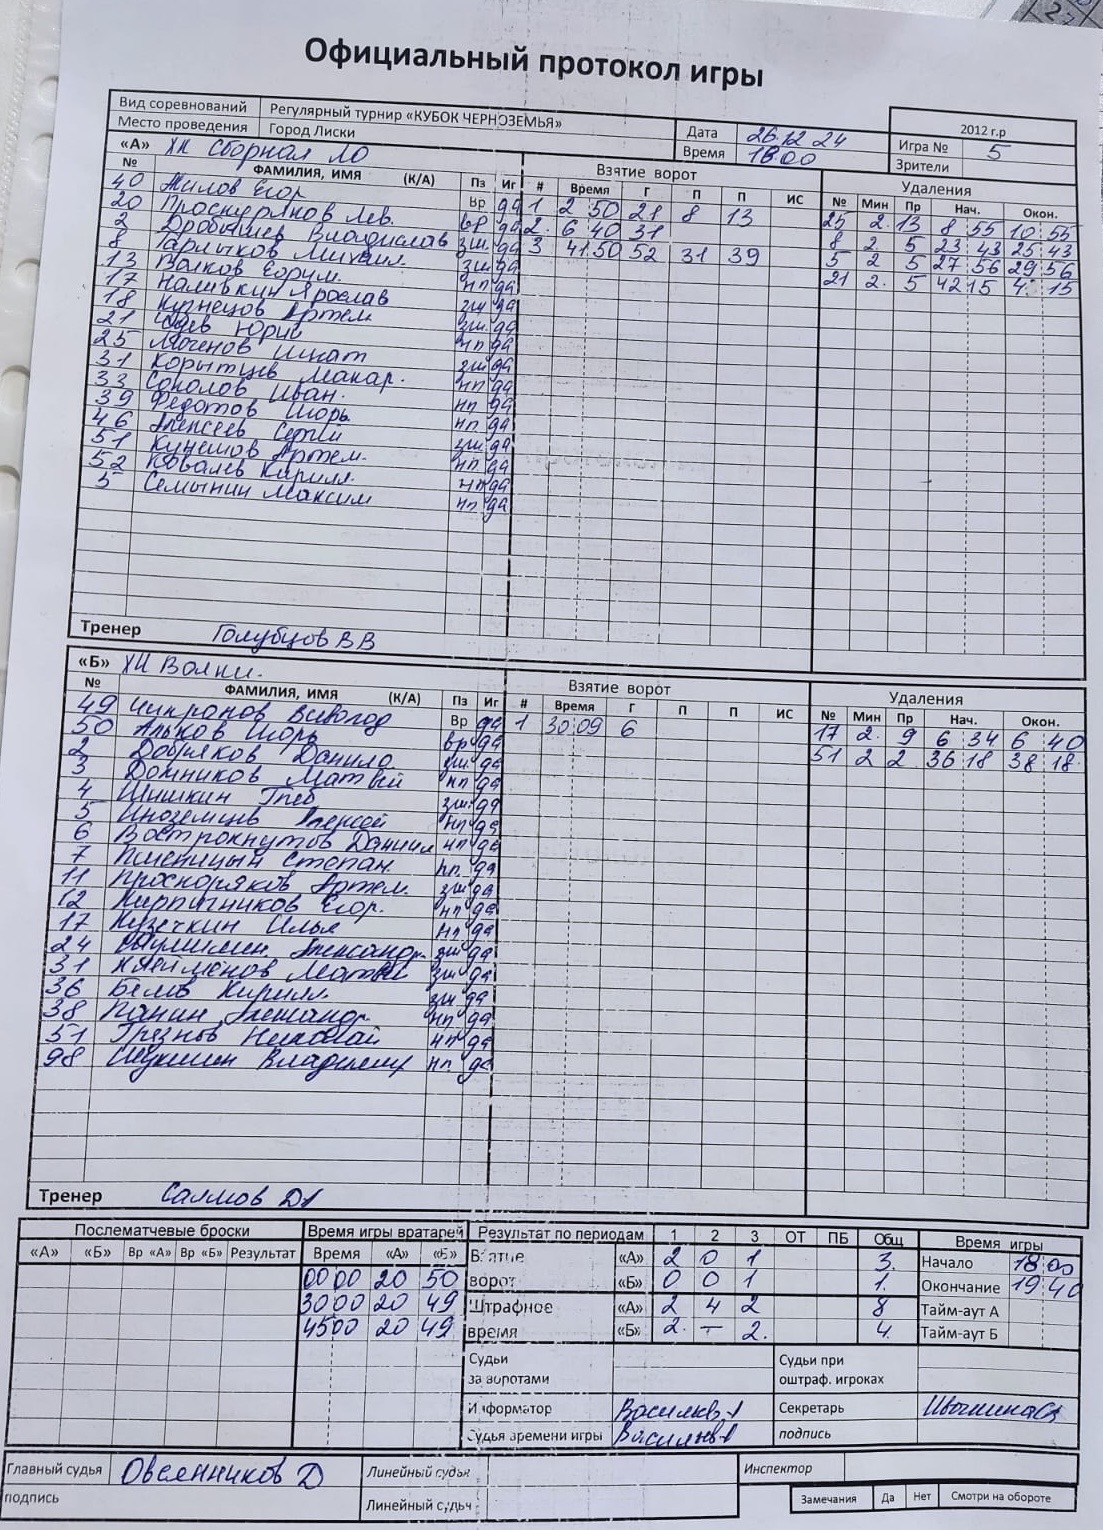 Официальный протокол игры
Вид соревнований Регулярный турнир «КУБОК ЧЕРНОЗЕМЬЯ»
Место проведения Город Лиски
Дата 26.12 24
Время 18 00
2012 г.р
Игра № 5
Зрители
«А» ХК Сборная ЛО
Взятие ворот
Удаления
№ ФАМИЛИЯ, ИМЯ (К/А) Пз Иг # Время Г П П ИС № Мин Пр Нач. Окон.
40 Жилов Егор Вр да 1 2 50 21 8 13 25 2 13 8 55 10 55
20 Проскуряков Лев. вр да 2. 6 40 31 8 2 5 23 43 25 43
2 Владислав зщ. да 3 41 50 52 31 39 5 2 5 27 56 29 56
8 Гарлыков Михаил. зщ да 21 2. 5 42 15 4 15
13 Волков нп да
17 Наливкин Ярослав зщ да
18 Кузнецов Артем зщ. да
21 Юрий нп да
25 зщ да
31 Корытцев Макар. нп да
33 Соколов Иван. нп да
39 Федотов Игорь нп да
46 Алексеев Сергей зщ да
51 Артем. нп да
52 Ковалев Кирилл. нп да
5 Семынин Максим нп да
Тренер Голубцов В В
«Б» ХК Волки.
Взятие ворот
Удаления
№ ФАМИЛИЯ, ИМЯ (К/А) Пз Иг # Время Г П П ИС № Мин Пр Нач. Окон.
49 Всеволод Вр да 1 30 09 6 17 2. 9 6 34 6 40
50 Игорь вр да 51 2 2 36 18 38 18
2 Добряков Данила зщ да
3 Домников Матвей нп да
4 Шишкин Глеб зщ да
5 Иноземцев Алексей нп да
6 Вострокнутов Даниил нп да
7 Пшеницын Степан. нп. да
11 Проскоряков Артем зщ да
12 Кирпичников Егор. нп да
17 Кузечкин Илья нп да
24 Александр. зщ да
31 Клейменов Матвей зщ да
36 Белов Кирилл. зщ да
38 Панин Александр. нп да
51 Грязнов Николай нп да
98 Владимир нп. да
Тренер
Послематчевые броски Время игры вратарей Результат по периодам 1 2 3 ОТ ПБ Общ Время игры
«А» «Б» Вр «А» Вр «Б» Результат Время «А» «Б» Взятие «А» 2 0 1 3. Начало 18 00
00 00 20 50 ворот «Б» 0 0 1 1. Окончание 19 40
30 00 20 49 Штрафное «А» 2 4 2 8 Тайм-аут А
45 00 20 49 время «Б» 2. – 2. 4. Тайм-аут Б
Судьи за воротами
Судьи при оштраф. игроках
Информатор
Секретарь
Судья времени игры
подпись
Главный судья Овсянников Д
Линейный судья
Инспектор
подпись
Линейный судья
Замечания Да Нет Смотри на обороте